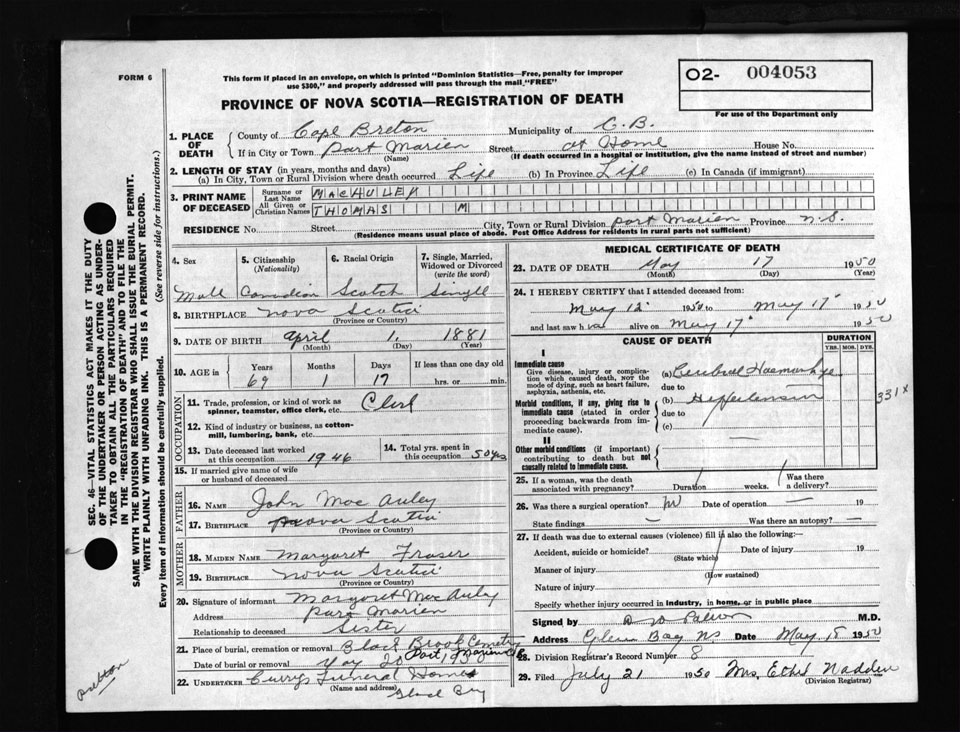 FORM 6
This form if placed in an envelope, on which is printed "Dominion Statistics—Free, penalty for improper
use $300," and properly addressed will pass through the mail "FREE"
O2- 004053
For use of the Department only
PROVINCE OF NOVA SCOTIA—REGISTRATION OF DEATH
1. PLACE OF DEATH
County of Cape Breton Municipality of C.B.
If in City or Town Port Marien Street at Home House No.
(Name) (If death occurred in a hospital or institution, give the name instead of street and number)
2. LENGTH OF STAY (in years, months and days)
(a) In City, Town or Rural Division where death occurred Life (b) In Province Life (c) In Canada (if immigrant)
3. PRINT NAME OF DECEASED
Surname or Last Name MACAULEY
All Given or Christian Names THOMAS M
RESIDENCE No. Street City, Town or Rural Division Port Marien Province N.S.
(Residence means usual place of abode. Post Office Address for residents in rural parts not sufficient)
4. Sex
Male
5. Citizenship (Nationality)
Canadian
6. Racial Origin
Scotch
7. Single, Married, Widowed or Divorced (write the word)
Single
8. BIRTHPLACE Nova Scotia
(Province or Country)
9. DATE OF BIRTH April 1, 1881
(Month) (Day) (Year)
10. AGE in Years Months Days If less than one day old
69 1 17 hrs. or min.
OCCUPATION
11. Trade, profession, or kind of work as spinner, teamster, office clerk, etc. Clerk
12. Kind of industry or business, as cotton-mill, lumbering, bank, etc.
13. Date deceased last worked at this occupation 1946
14. Total yrs. spent in this occupation 50 yrs
15. If married give name of wife or husband of deceased
FATHER
16. Name John MacAuley
17. Birthplace Nova Scotia
(Province or Country)
MOTHER
18. Maiden Name Margaret Fraser
19. Birthplace Nova Scotia
(Province or Country)
20. Signature of informant Margaret MacAuley
Address Port Marien
Relationship to deceased Sister
21. Place of burial, cremation or removal Black Brook Cemetry
Port Marien C.B.
Date of burial or removal May 20 195
22. Undertaker Curry's Funeral Home
(Name and address) Glace Bay
MEDICAL CERTIFICATE OF DEATH
23. DATE OF DEATH May 17 1950
(Month) (Day) (Year)
24. I HEREBY CERTIFY that I attended deceased from:
May 12 1950 to May 17 1950
and last saw h alive on May 17 1950
CAUSE OF DEATH
DURATION
YRS. MOS. DYS.
I
Immediate cause
Give disease, injury or complication which caused death, NOT the mode of dying, such as heart failure, asphyxia, asthenia, etc.
(a) Cerebral Haemorrhage
due to
Morbid conditions, if any, giving rise to immediate cause (stated in order proceeding backwards from immediate cause).
(b) Hypertension
331X
due to
(c) —
II
Other morbid conditions (if important) contributing to death but not causally related to immediate cause.
25. If a woman, was the death associated with pregnancy? Duration weeks. Was there a delivery?
26. Was there a surgical operation? no Date of operation — 19
State findings — Was there an autopsy? —
27. If death was due to external causes (violence) fill in also the following:
Accident, suicide or homicide? (State which) Date of injury 19
Manner of injury (How sustained)
Nature of injury
Specify whether injury occurred in industry, in home, or in public place
Signed by M.D.
Address Glace Bay NS Date May 18 1950
28. Division Registrar's Record Number 8
29. Filed July 21 1950 Mrs. Ethel Nadden
(Division Registrar)
SEC. 46—VITAL STATISTICS ACT MAKES IT THE DUTY
OF THE UNDERTAKER OR PERSON ACTING AS UNDER-
TAKER TO OBTAIN ALL THE PARTICULARS REQUIRED
IN THE "REGISTRATION OF DEATH" AND TO FILE THE
SAME WITH THE DIVISION REGISTRAR WHO SHALL ISSUE THE BURIAL PERMIT.
WRITE PLAINLY WITH UNFADING INK. THIS IS A PERMANENT RECORD.
Every item of information should be carefully supplied. (See reverse side for instructions.)